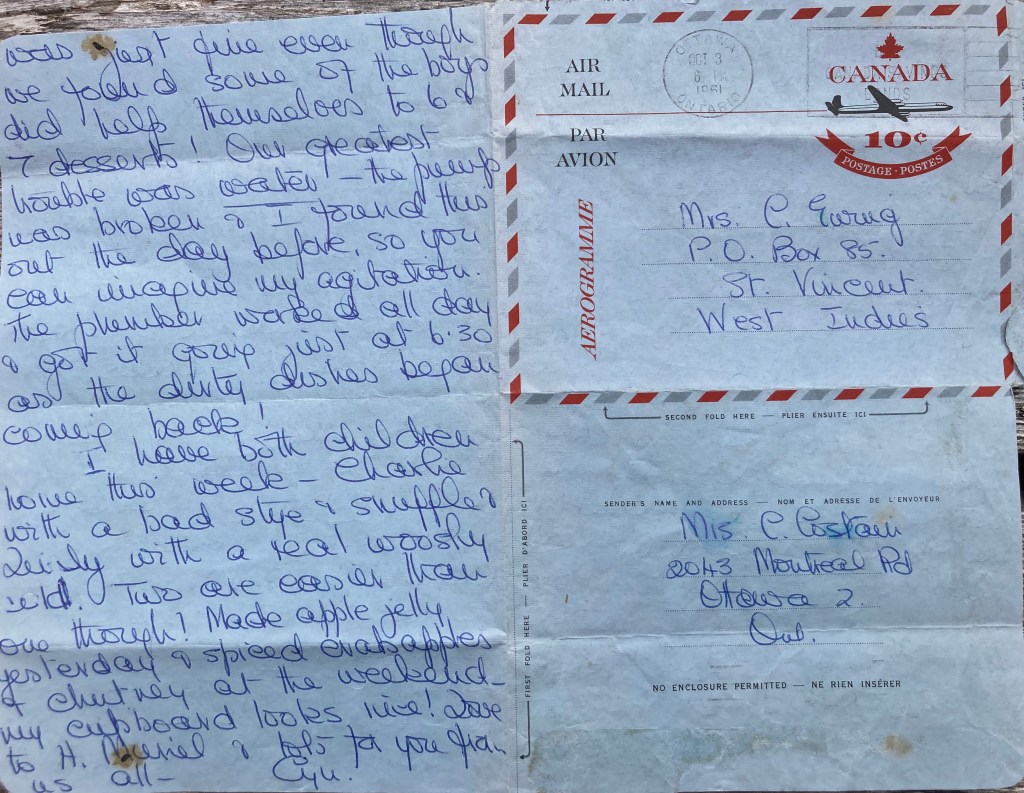 was just fine even though
we found some of the boys
did help themselves to 6 &
7 desserts! Our greatest
trouble was water – the pump
was broken & I found this
out the day before, so you
can imagine my agitation.
The plumber worked all day
& got it going just at 6:30
as the dirty dishes began
coming back!
I have both children
home this week – Charlie
with a bad stye & snuffles &
with a real wooshy
cold. Two are easier than
one though! Made apple jelly
yesterday & spiced crabapples
& chutney at the weekend –
my cupboard looks nice! Love
to H. Muriel & lots for you from
us all – Cyn.
AIR
MAIL
PAR
AVION
AEROGRAMME
OTTAWA
OCT 3
1961
ONTARIO
CANADA
10¢
POSTAGE · POSTES
Mrs. C. Ewing
P.O. Box 85.
St. Vincent.
West Indies
SECOND FOLD HERE — PLIER ENSUITE ICI
FIRST FOLD HERE — PLIER D'ABORD ICI
SENDER'S NAME AND ADDRESS — NOM ET ADRESSE DE L'ENVOYEUR
Mrs. C. Costain
2043 Montreal Rd
Ottawa 2.
Ont.
NO ENCLOSURE PERMITTED — NE RIEN INSÉRER